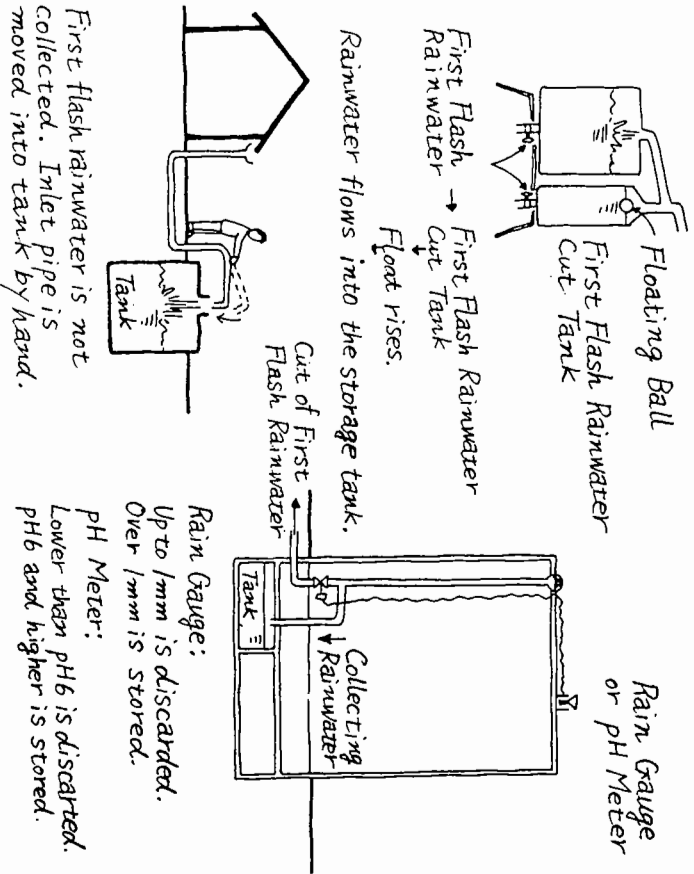 Floating Ball
First Flash Rainwater
Cut Tank
First Flash
Rainwater → First Flash Rainwater
Cut Tank
↓
Float rises.
↓
Rainwater flows into the storage tank.
Tank
First flash rainwater is not
collected. Inlet pipe is
moved into tank by hand.
Rain Gauge
or pH Meter
Collecting
Rainwater
Cut of First
Flash Rainwater
Tank
Rain Gauge:
Up to 1mm is discarded.
Over 1mm is stored.
pH Meter:
Lower than pH6 is discarted.
pH6 and higher is stored.